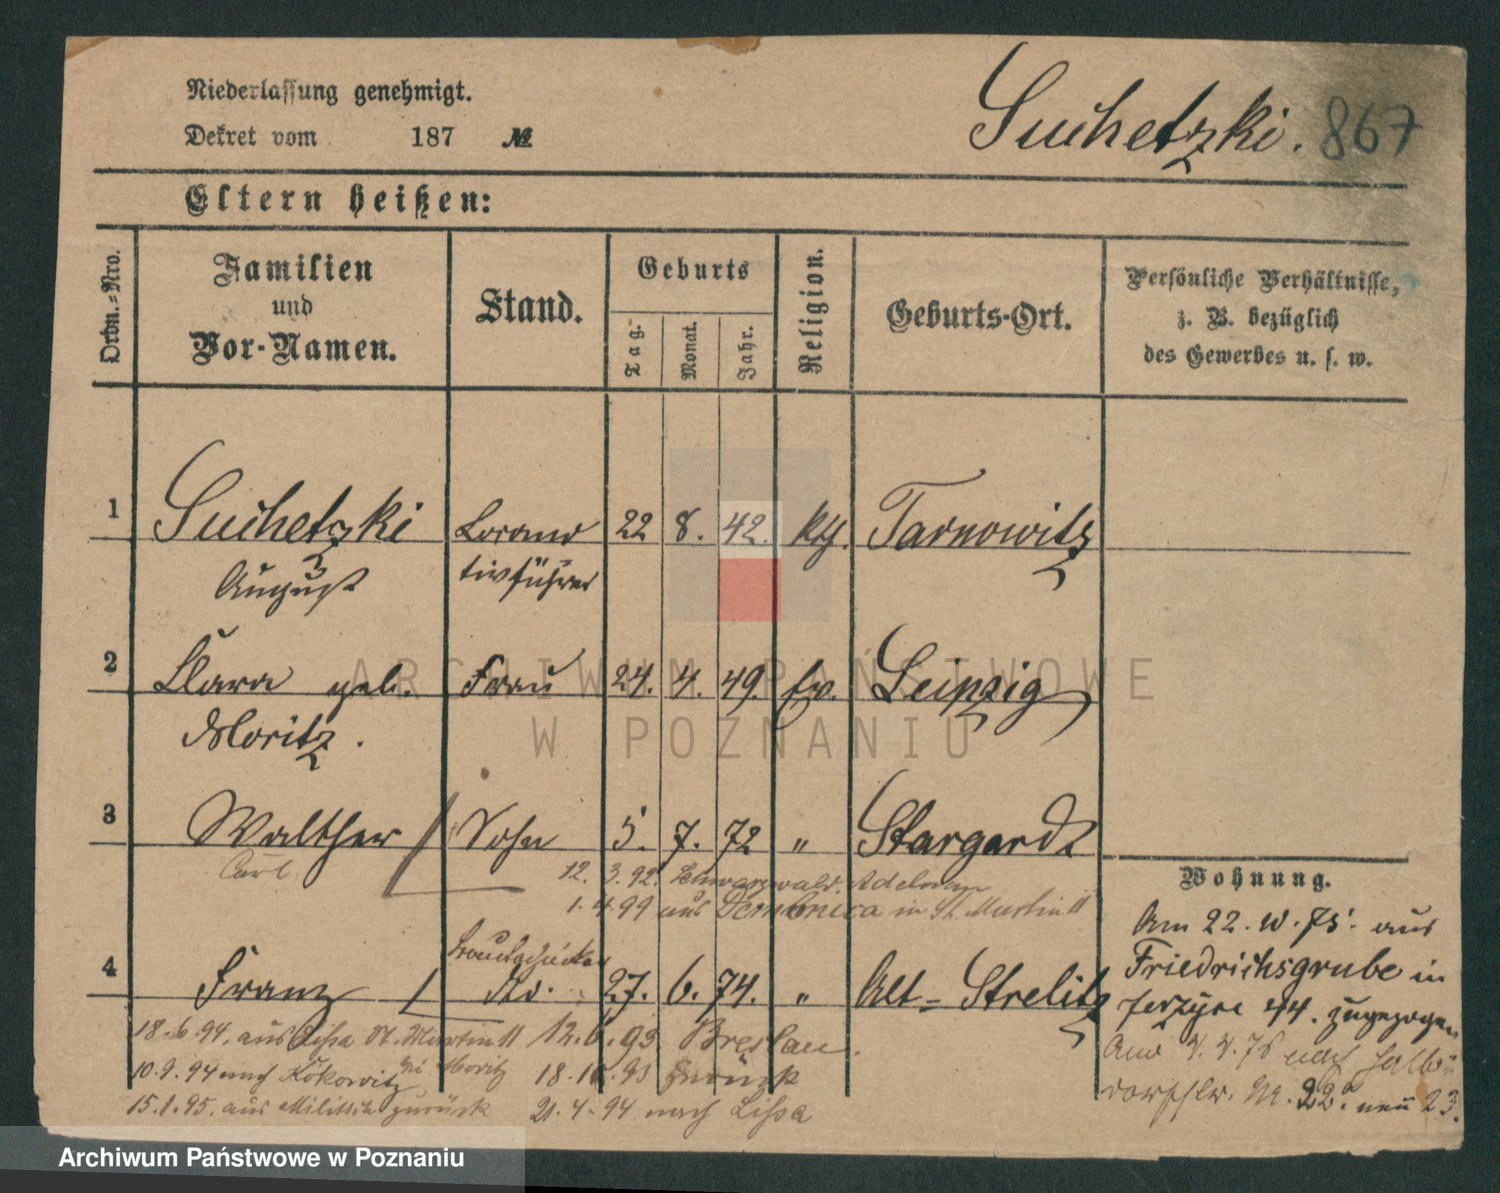 Niederlassung genehmigt.
Dekret vom 187 №
Suchetzki. 867
Eltern heißen:
Ordn.=Nro.
Familien und Vor-Namen.
Stand.
Geburts
Tag.
Monat.
Jahr.
Religion.
Geburts-Ort.
Persönliche Verhältnisse,
z. B. bezüglich
des Gewerbes u. s. w.
1 Suchetzki Locomo 22 8. 42. kth. Tarnowitz
August tivführer
2 Clara geb. Frau 24. 4. 49. ev. Leipzig
Moritz.
3 Walther Sohn 5. 7. 72 " Stargard
Carl 12. 3. 92. Schwarzwald, Adelnau
1. 4. 99 aus in St. Martin 11
4 Franz do. 27. 6. 74. " Alt-Strelitz
18. 6. 94. aus Lissa St. Martin 11 12. 6. 93. Breslau.
10. 9. 94 nach Kokowitz 18. 10. 93 zurück
15. 1. 95. aus Militsch zurück 21. 4. 94 nach Lissa
Wohnung.
Am 22. 10. 75. aus
Friedrichsgrube in
Jerzyce 44. zugezogen
nach Halben
dorfstr. No. 22. neu 23.
ARCHIWUM PAŃSTWOWE
W POZNANIU
Archiwum Państwowe w Poznaniu